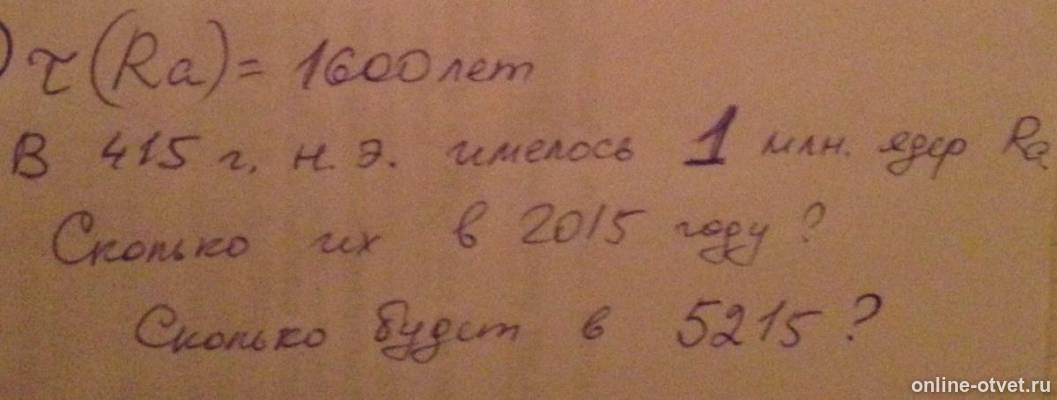 ) τ(Ra) = 1600 лет
В 415 г. н.э. имелось 1 млн. ядер Ra.
Сколько их в 2015 году?
Сколько будет в 5215?
online-otvet.ru